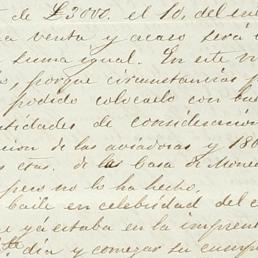 de £3000. el 10, del
a venta y acaso será
suma igual. En este
porque circunstancias
podido colocarlo con
tidades de consideración
cion de las aviadoras y 180
estas. de la Casa de Mone
pero no lo ha hecho.
baile en celebridad del
ya estaba en la imprent
día y comezar su